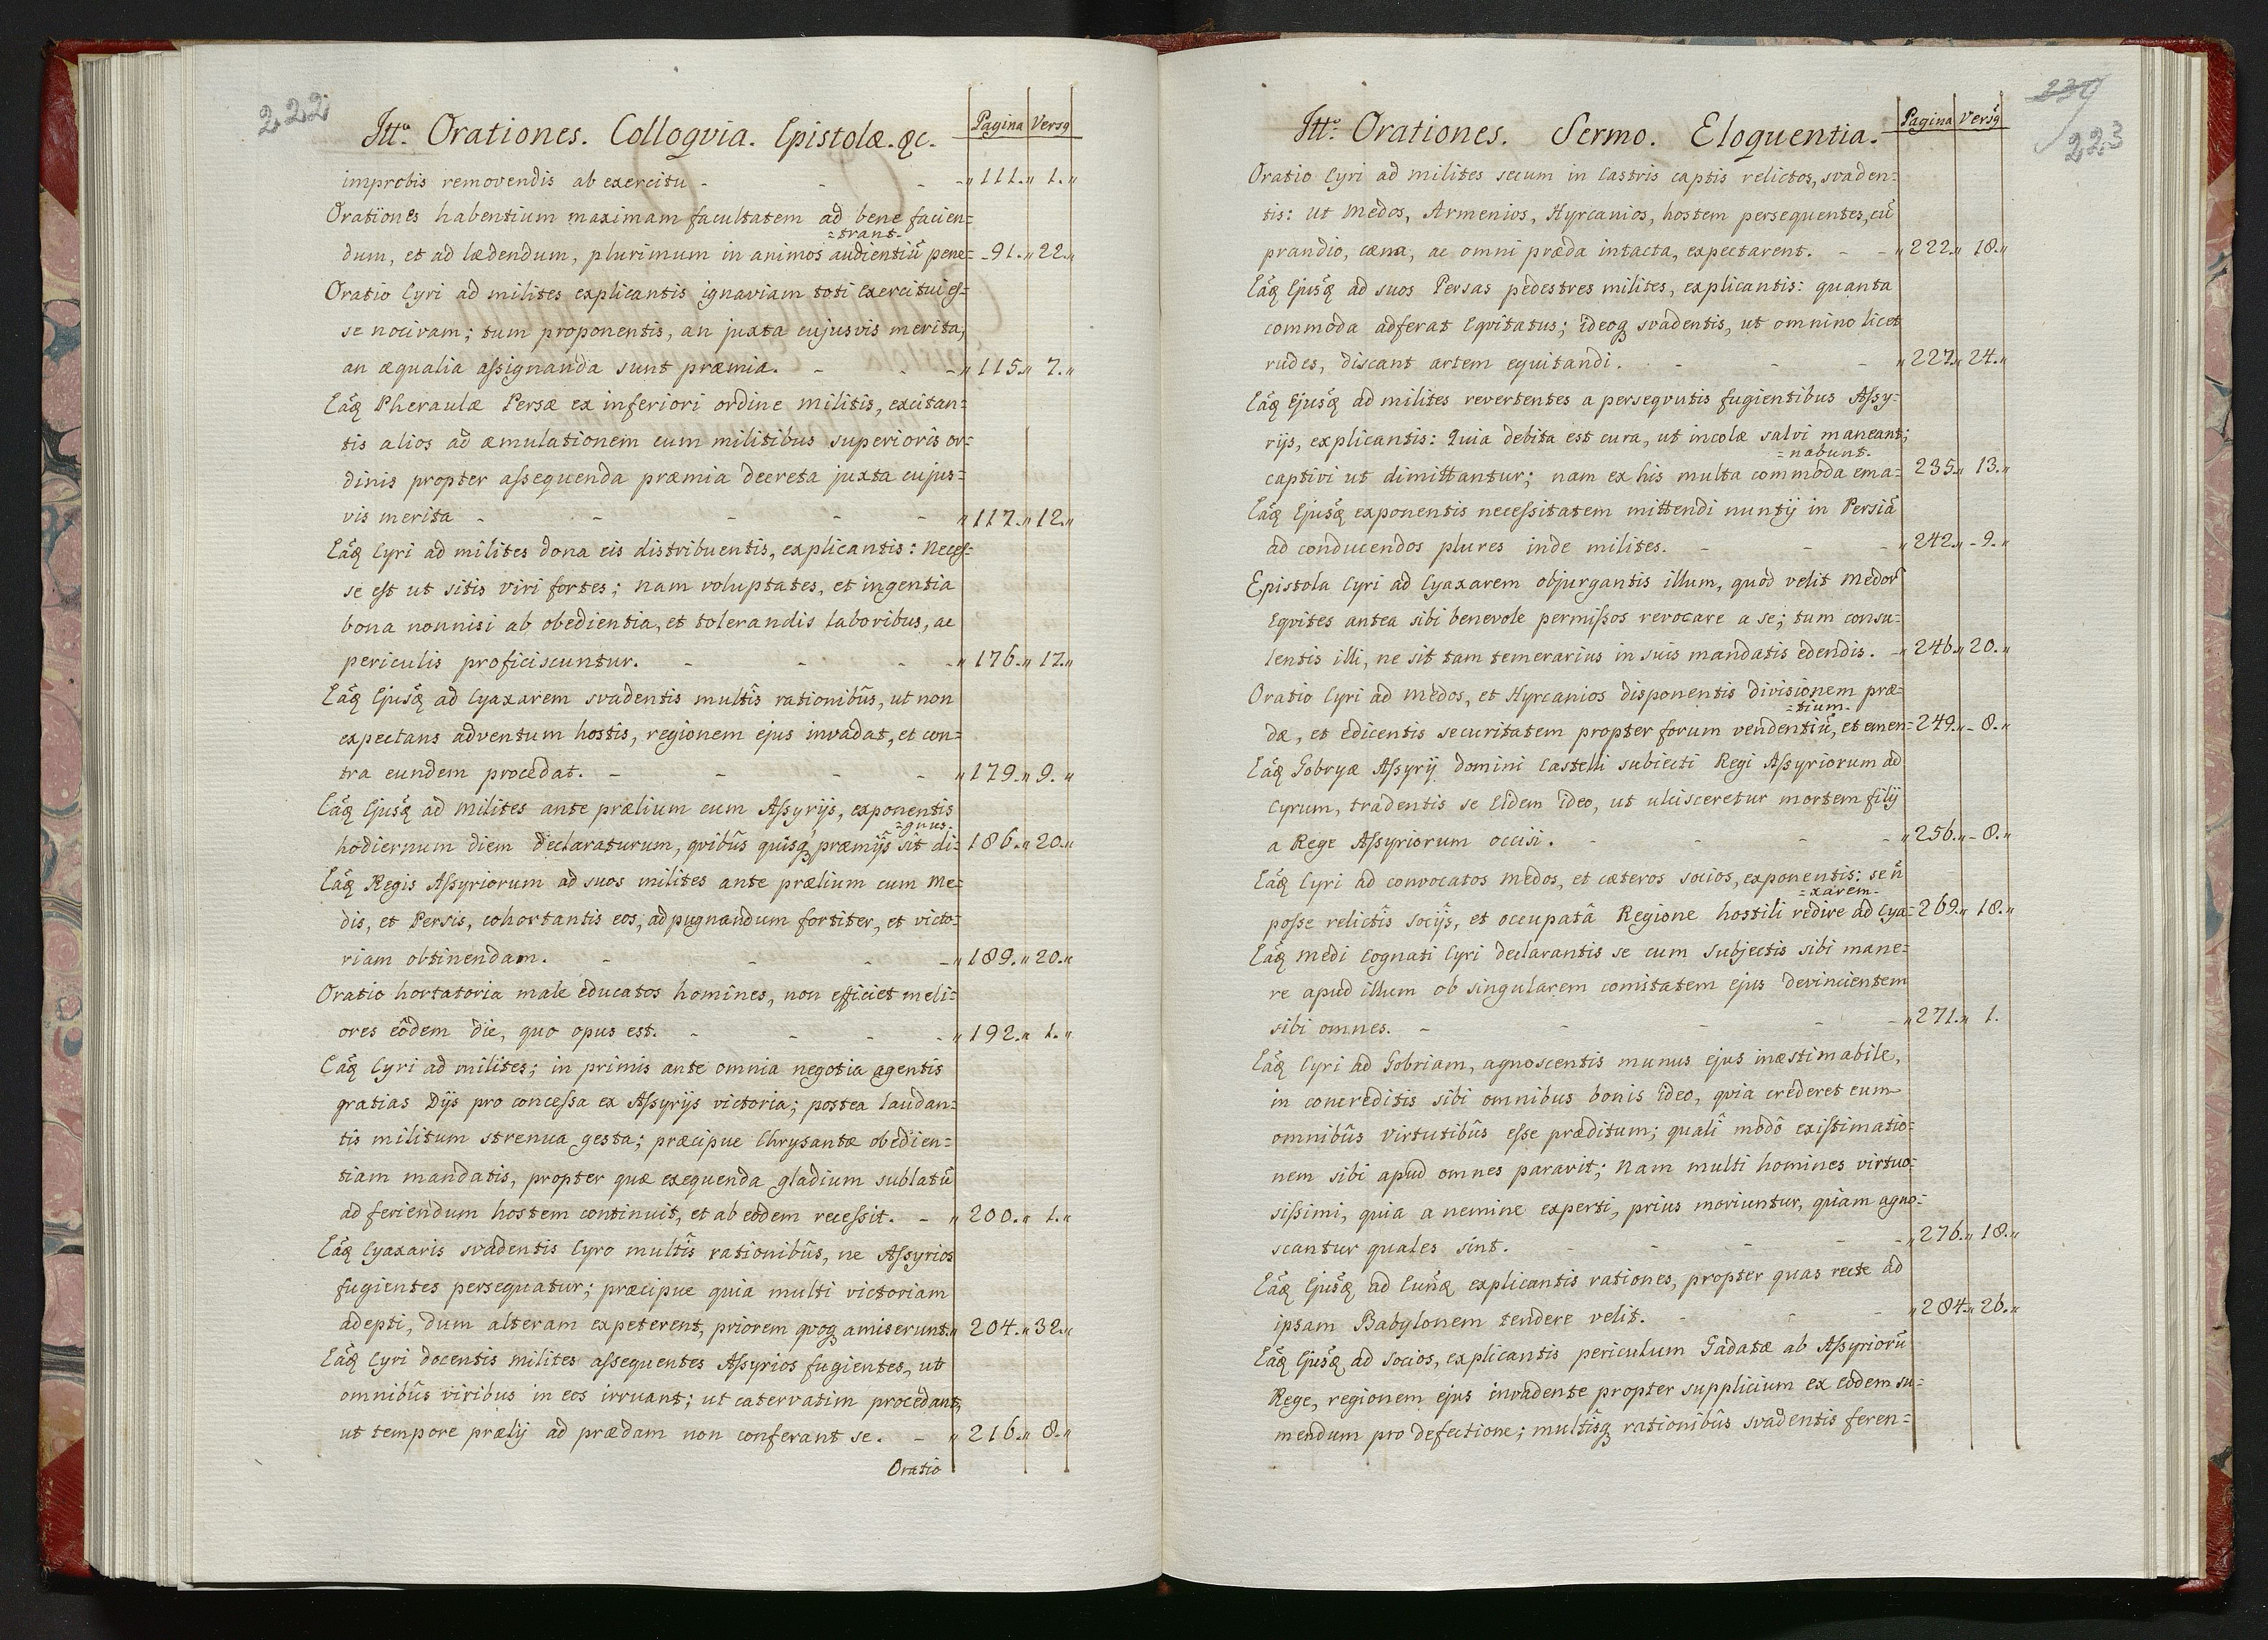 222
Ittō. Orationes. Colloqvia. Epistolæ. &c.
Pagina Versq
improbis removendis ab exercitu - - - - „ 111. „ 1. „
Orationes habentium maximam facultatem ad bene facien=
=trant.
dum, et ad lædendum, plurimum in animos audientiū pene= - 91. „ 22. „
Oratio Cyri ad milites explicantis ignaviam toti exercitui es=
se nocivam; tum proponentis, an juxta cujusvis merita,
an æqualia assignanda sunt præmia. - - - „ 115. „ 7. „
Eāq Pheraulæ Persæ ex inferiori ordine militis, excitan=
tis alios ad æmulationem cum militibus superioris or=
dinis propter assequenda præmia decreta juxta cujus=
vis merita - - - - - „ 117. „ 12. „
Eāq Cyri ad milites dona eis distribuentis, explicantis: Neces=
se est ut sitis viri fortes; nam voluptates, et ingentia
bona nonnisi ab obedientia, et tolerandis laboribus, ac
periculis proficiscuntur. - - - - „ 176. „ 17. „
Eāq Ejusq̄ ad Cyaxarem svadentis multîs rationibûs, ut non
expectans adventum hostis, regionem ejus invadat, et con=
tra eundem procedat. - - - - „ 179. „ 9. „
Eāq Ejusq̄ ad milites ante prælium cum Assyrijs, exponentis
=gnus.
hodiernum diem declaraturum, qvibûs quisq præmijs sit di= 186. „ 20. „
Eāq Regis Assyriorum ad suos milites ante prælium cum Me=
dis, et Persis, cohortantis eos, ad pugnandum fortiter, et victo=
riam obtinendam. - - - - „ 189. „ 20. „
Oratio hortatoria male educatos homines, non efficiet meli=
ores eôdem die, quo opus est. - - - - „ 192. „ 1. „
Eāq Cyri ad milites; in primis ante omnia negotia agentis
gratias Dijs pro concessa ex Assyrijs victoria; postea laudan=
tis militum strenua gesta; præcipue Chrysantæ obedien=
tiam mandatis, propter quæ exequenda gladium sublatū
ad feriendum hostem continuit, et ab eodem recessit. - „ 200. „ 1. „
Eāq Cyaxaris svadentis Cyro multîs rationibûs, ne Assyrios
fugientes persequatur; præcipue quia multi victoriam
adepti, dum alteram expeterent, priorem qvoq amiserunt. „ 204. „ 32. „
Eāq Cyri docentis milites assequentes Assyrios fugientes, ut
omnibûs viribus in eos irruant; ut catervatim procedant,
ut tempore prælij ad prædam non conferant se. - „ 216. „ 8. „
Oratio
239
223
Ittō. Orationes. Sermo. Eloquentia.
Pagina Versq
Oratio Cyri ad milites secum in Castris captis relictos, svaden=
tis: ut Medos, Armenios, Hyrcanios, hostem persequentes, cū
prandio, cæna, ac omni præda intacta, expectarent. - - „ 222. „ 18. „
Eāq Ejusq̄ ad suos Persas pedestres milites, explicantis: quanta
commoda adferat Eqvitatus; ideoq svadentis, ut omnino licet
rudes, discant artem equitandi. - - - „ 227. „ 24. „
Eāq Ejusq̄ ad milites revertentes a perseqvutis fugientibus Assy=
rijs, explicantis: Quia debita est cura, ut incolæ salvi maneant;
=nabunt.
captivi ut dimittantur; nam ex his multa commoda ema= 235. „ 13. „
Eāq Ejusq̄ exponentis necessitatem mittendi nuntij in Persiā
ad conducendos plures inde milites. - - - „ 242. „ - 9. „
Epistola Cyri ad Cyaxarem objurgantis illum, quod velit Medor
Eqvites antea sibi benevole permissos revocare a se; tum consu=
lentis illi, ne sit tam temerarius in suis mandatis edendis. - „ 246. „ 20. „
Oratio Cyri ad Medos, et Hyrcanios disponentis divisionem præ=
=tium.
dæ, et edicentis securitatem propter forum vendentiū, et emen= 249. „ - 8. „
Eāq Gobryæ Assyrij Domini Castelli subiecti Regi Assyriorum ad
Cyrum, tradentis se Eidem ideo, ut ulcisceretur mortem filij
a Rege Assyriorum occisi. - - - - „ 256. „ - 8. „
Eāq Cyri ad convocatos Medos, et cæteros socios, exponentis: se n̄
=xarem.
posse relictîs socijs, et occupatâ Regione hostili redire ad Cya= 269. „ 18. „
Eāq Medi Cognati Cyri declarantis se cum subjectis sibi mane=
re apud illum ob singularem comitatem ejus devincientem
sibi omnes. - - - - - „ 271. „ 1.
Eāq Cyri ad Gobriam, agnoscentis munus ejus inæstimabile,
in concreditis sibi omnibus bonis ideo, qvia crederet eum
omnibûs virtutibûs esse præditum; qualî modô existimatio=
nem sibi apud omnes paravit; Nam multi homines virtuo=
sissimi, quia a nemine experti, prius moriuntur, quam agno=
scantur quales sint. - - - - - „ 276. „ 18. „
Eāq Ejusq̄ ad Eunq̄ explicantis rationes, propter quas recte ad
ipsam Babylonem tendere velit. - - - „ 284. „ 26. „
Eāq Ejusq̄ ad socios, explicantis periculum Gadatæ ab Assyriorū
Rege, regionem ejus invadente propter supplicium ex eôdem su=
mendum pro defectione; multîsq rationibûs svadentis feren=